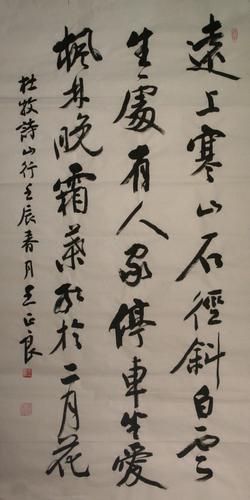 遠上寒山石徑斜白雲
生處有人家停車坐愛
楓林晚霜葉紅於二月花
杜牧詩山行壬辰春月正良